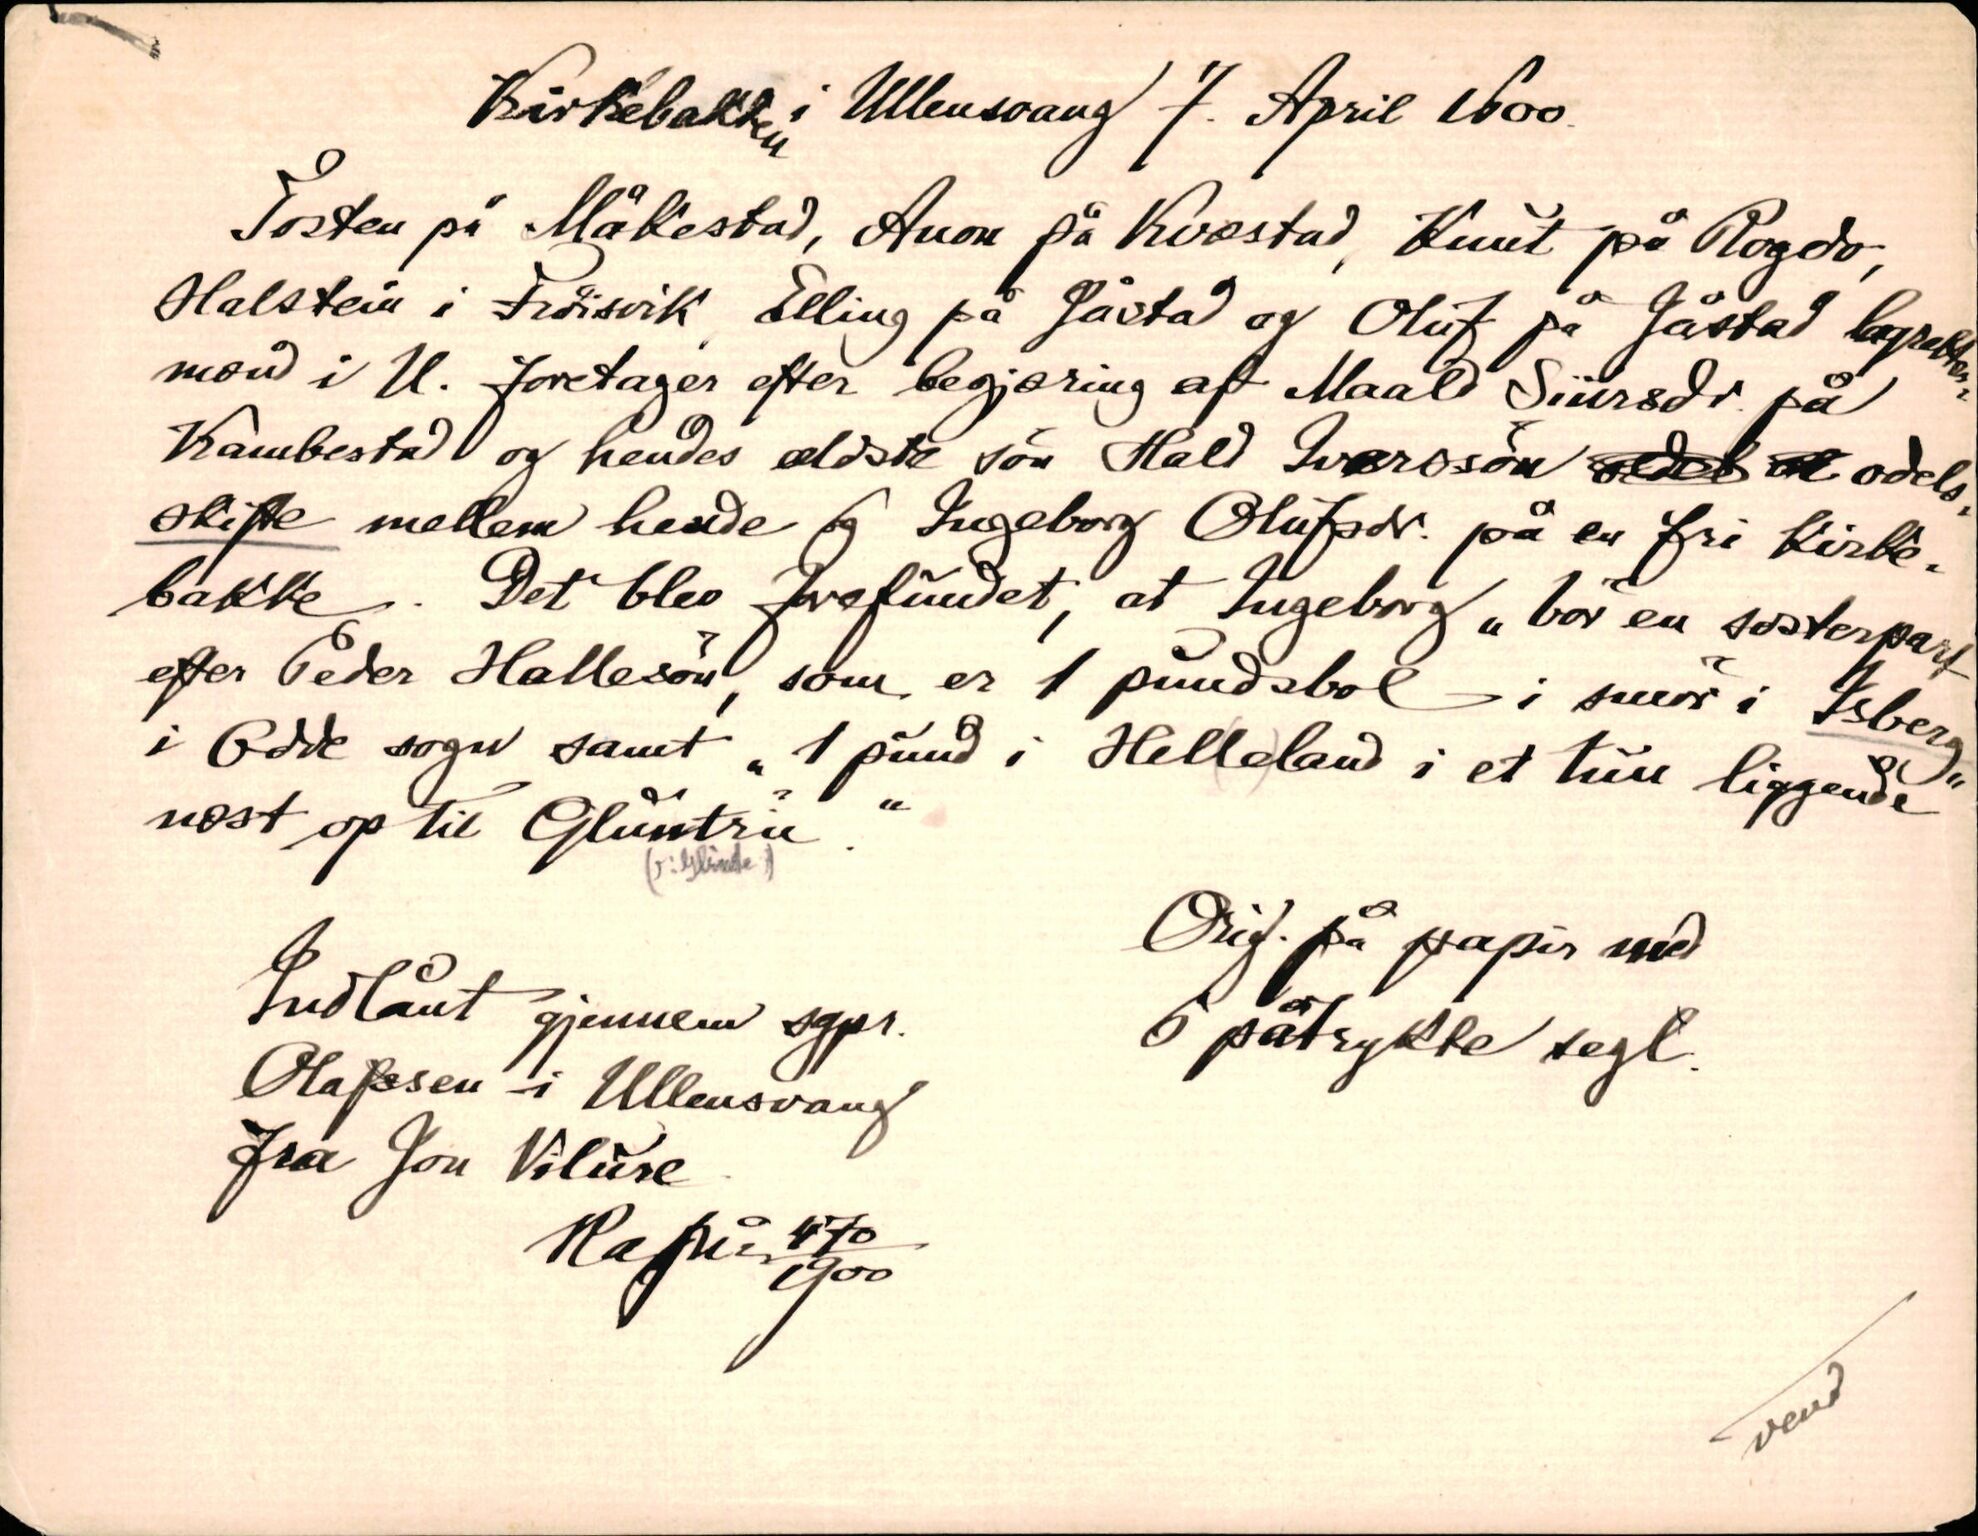 Kirkebakken i Ullensvang 7. April 1600.
Tosten på Måkestad, Anon på Kvæstad, Knut på Rogdo,
Halstein i Fröisvik, Elling på Jåstad og Oluf på Jåstad lagrettes-
mænd i U. foretager efter begjæring af Maald Siursdr. på
Kambestad og hendes ældste sön Hald Iverssön odels-
skifte mellem hende og Ingeborg Olufsdr. på en fri kirke-
bakke. Det blev forefundet, at Ingeborg „bör en sosterpart
efter Peder Hallesön, som er 1 pundsbol i smör i Isberg“
i Odde sogn samt „1 pund i Hel(le)land i et tun liggende
næst op til Gluntriu.“
(ɔ: Glinde)
Orig. på papir med
6 påtrykte segl.
Indlånt gjennem sgpr.
Olafsen i Ullensvang
fra Jon Vilure.
Ra. jnr. 470/1900
vend